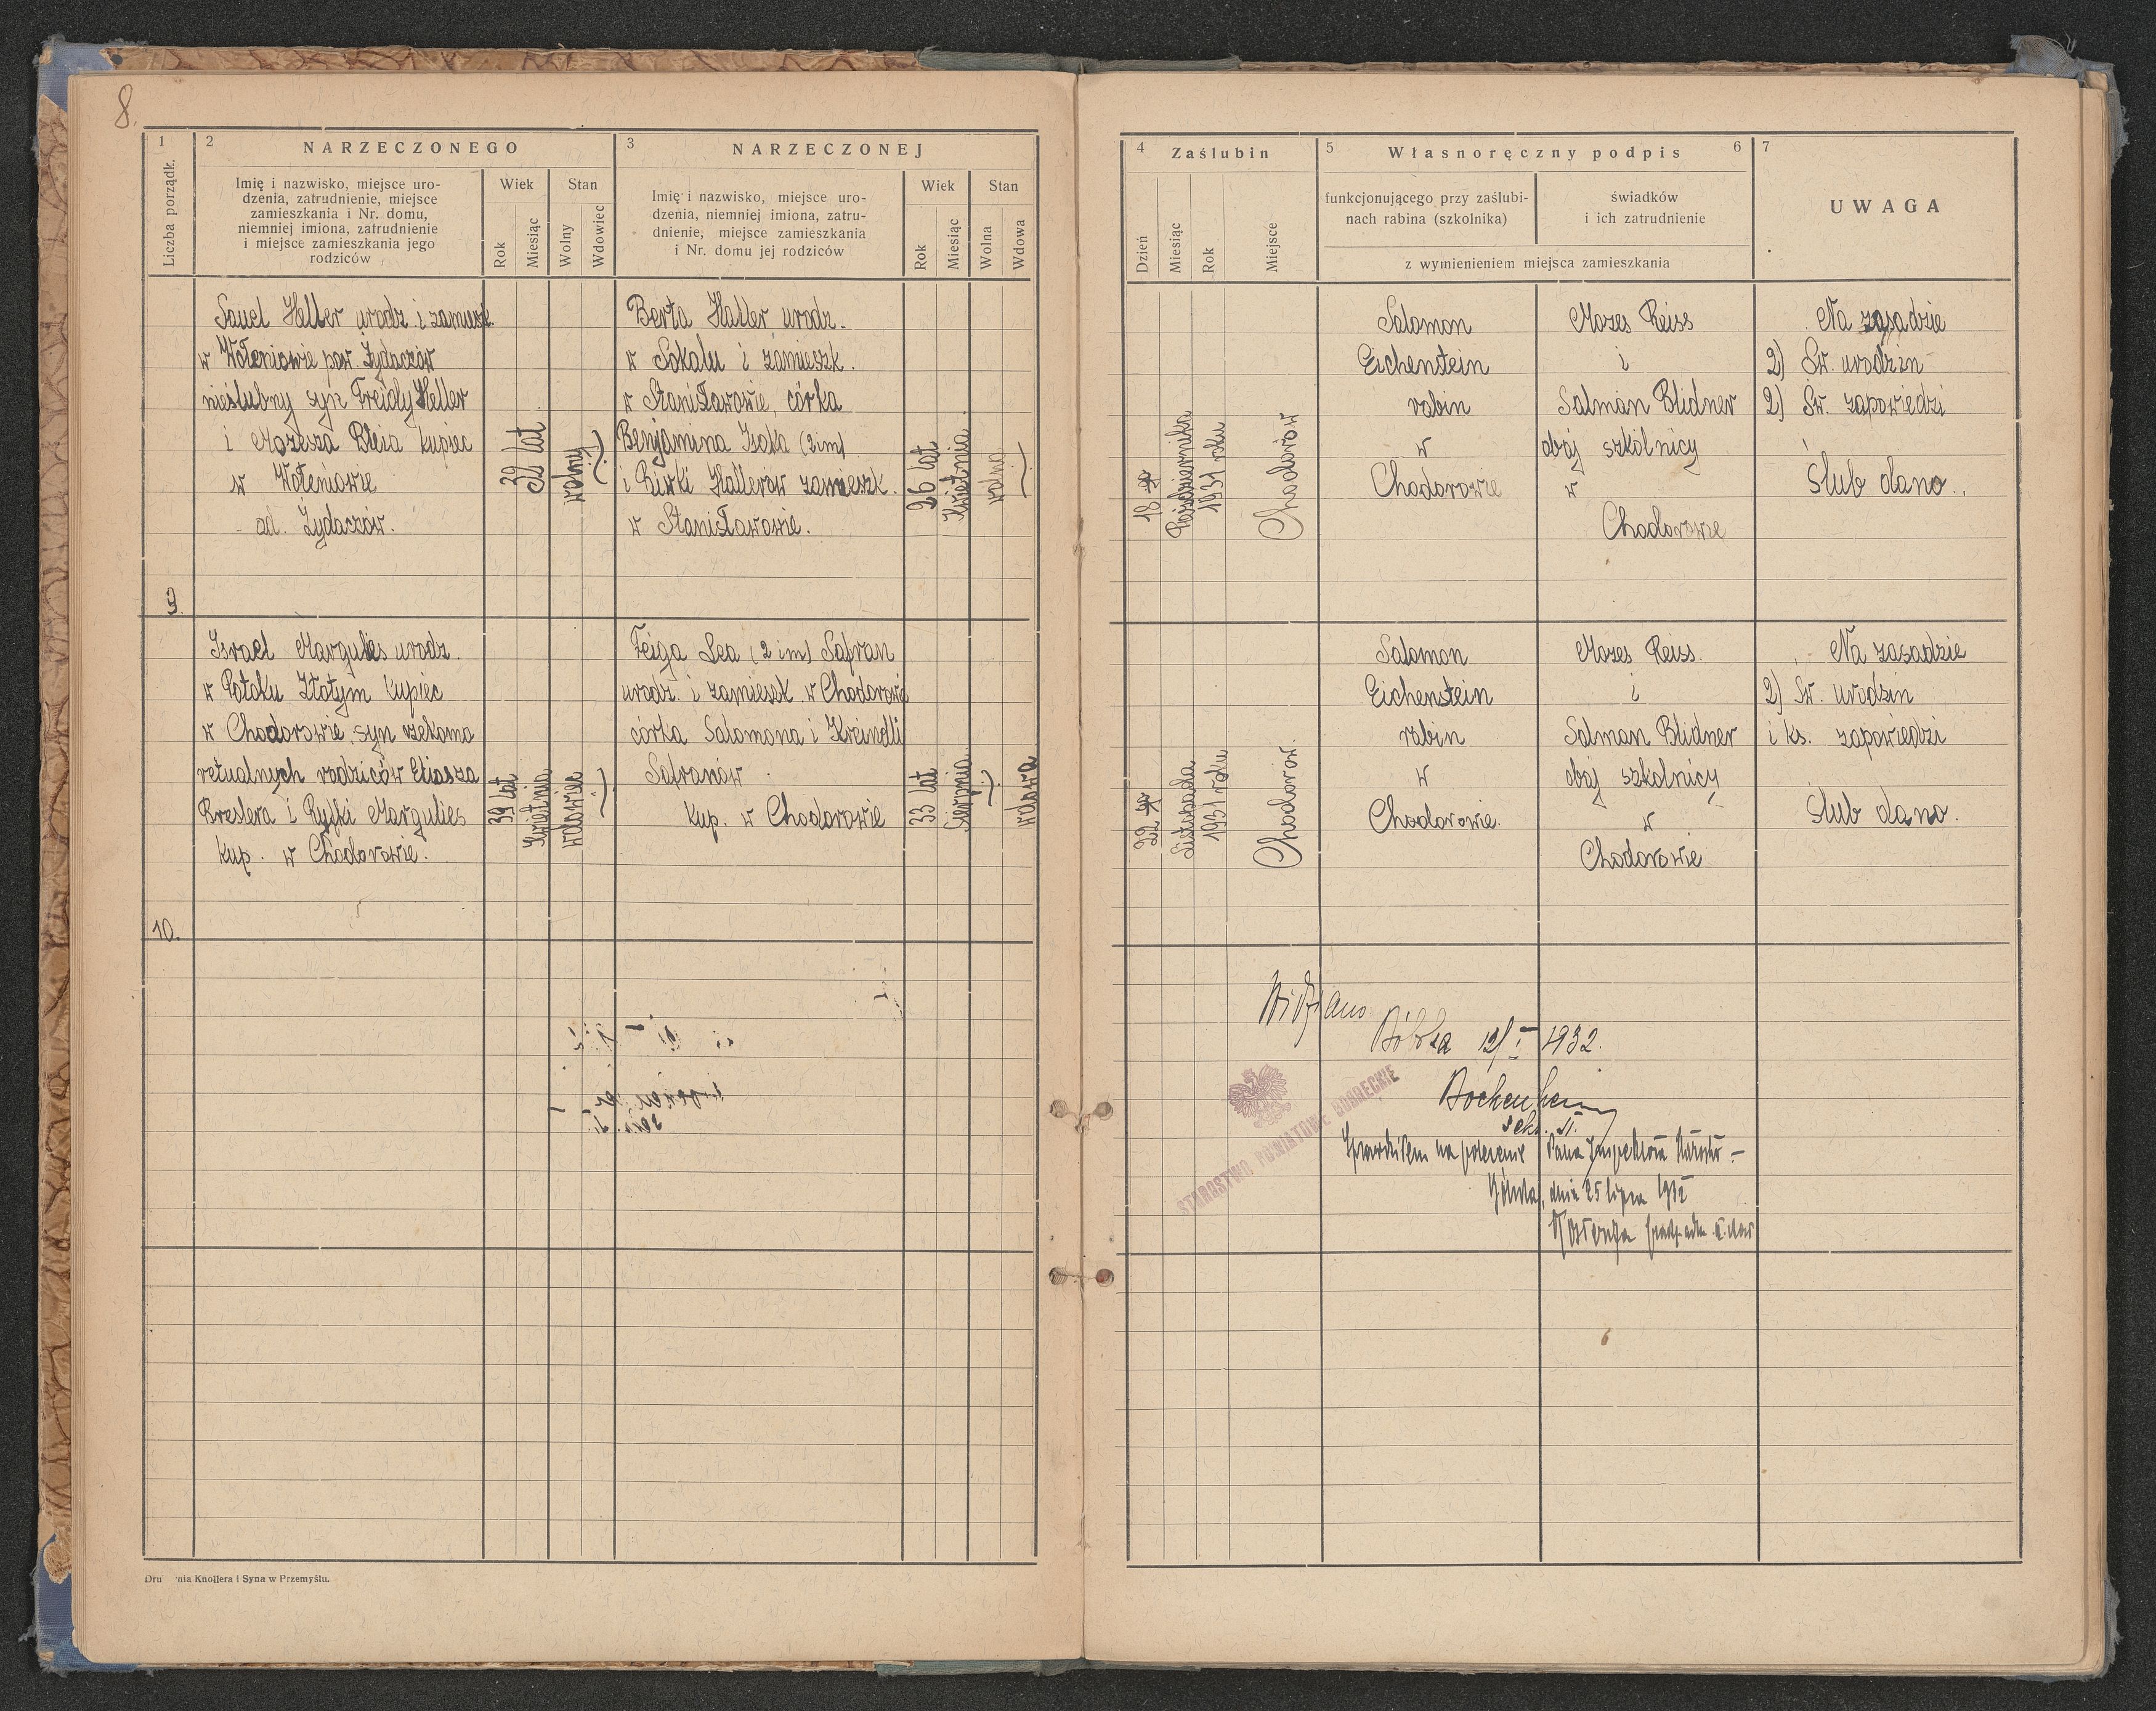 8.
1
Liczba porządk.
2
NARZECZONEGO
Imię i nazwisko, miejsce uro-
dzenia, zatrudnienie, miejsce
zamieszkania i Nr. domu,
niemniej imiona, zatrudnienie
i miejsce zamieszkania jego
rodziców
Wiek
Rok
Miesiąc
Stan
Wolny
Wdowiec
3
NARZECZONEJ
Imię i nazwisko, miejsce uro-
dzenia, niemniej imiona, zatru-
dnienie, miejsce zamieszkania
i Nr. domu jej rodziców
Wiek
Rok
Miesiąc
Stan
Wolna
Wdowa
4
Zaślubin
Dzień
Miesiąc
Rok
Miejsce
5
Własnoręczny podpis
6
funkcjonującego przy zaślubi-
nach rabina (szkolnika)
świadków
i ich zatrudnienie
z wymienieniem miejsca zamieszkania
7
UWAGA
9.
Heller urodz. i zamieszk.
w Wołeniowie pow. Żydaczów
nieślubny syn Freidy Heller
i Mozesza kupiec
w Wołeniowie
ad. Żydaczów.
32 lat
wolny
Berta Haller urodz.
w Sokalu i zamieszk.
w Stanisławowie, córka
Benjamina Isaka (2 im)
i Riwki Hallerów zamieszk.
w Stanisławowie.
26 lat
Kwietnia
wolna
18
Października
1931 roku
Chodorów
Salomon
Eichenstein
rabin
w
Chodorowie
Mozes Reiss
i
Salman Blidner
obaj szkolnicy
w
Chodorowie
Na zasadzie
2) Św. urodzin
2) Św. zapowiedzi
Ślub dano.
10.
Israel Margulies urodz.
w Potoku Złotym kupiec
w Chodorowie, syn rzekomo
retualnych rodziców Eliasza
Kreslera i Ryfki Margulies
kup. w Chodorowie.
39 lat
Kwietnia
wdowiec
Feiga Lea (2 im) Safran
urodz. i zamieszk. w Chodorowie
córka Salomona i Kreindli
Safranów
kup. w Chodorowie
33 lat
Sierpnia
wdowa
22
Listopada
1931 roku
Chodorów.
Salomon
Eichenstein
rabin
w
Chodorowie.
Mozes Reiss.
i
Salman Blidner
obaj szkolnicy
w
Chodorowie
Na zasadzie
2) Św. urodzin
i ks. zapowiedzi
Ślub dano.
Widziano
Bóbrka 12/I 1932.
STAROSTWO POWIATOWE BOBRECKIE
Sprawdziłem na polecenie Pana Inspektora Starostw.
dnia 25 lipca 1932
Drukarnia Knollera i Syna w Przemyślu.